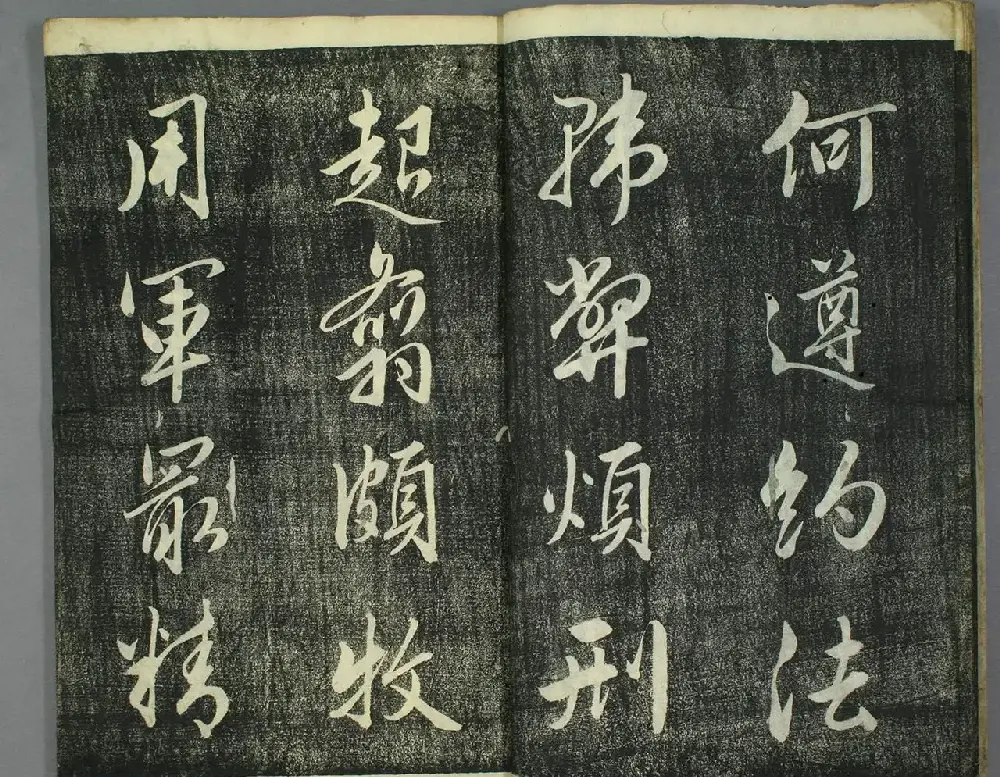 何遵約法
韓弊煩刑
起翦頗牧
用軍最精